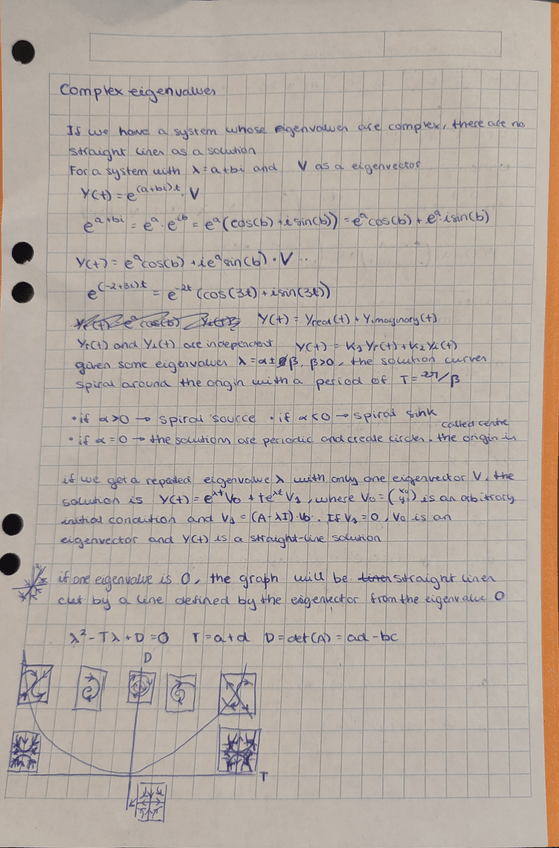 Complex eigenvalues
If we have a system whose eigenvalues are complex, there are no
straight lines as a solution
For a system with λ=a+bi and V as a eigenvector
Y(t) = e^(a+bi)t · V
e^a+bi = e^a · e^ib = e^a (cos(b) + i sin(b)) = e^a cos(b) + e^a i sin(b)
Y(t) = e^a cos(b) + ie^a sin(b) · V
e^(-2+3i)t = e^-2t (cos(3t) + i sin(3t))
Y(t) = Yreal(t) + Yimaginary(t)
Yr(t) and Yi(t) are independent Y(t) = K1 Yr(t) + K2 Yi(t)
given some eigenvalues λ = α ± β, β>0, the solution curves
spiral around the origin with a period of T = 2π/β
• if α>0 → spiral source • if α<0 → spiral sink
called centre
• if α=0 → the solutions are periodic and create circles. the origin is
if we get a repeated eigenvalue λ with only one eigenvector V, the
solution is Y(t) = e^λt V0 + te^λt V1, where V0 = (x0 y0) is an arbitrary
initial condition and V1 = (A-λI) V0. If V1 = 0, V0 is an
eigenvector and Y(t) is a straight-line solution
if one eigenvalue is 0, the graph will be straight lines
cut by a line defined by the eigenvector from the eigenvalue 0
λ² - Tλ + D = 0 T = a+d D = det(A) = ad - bc
D
T